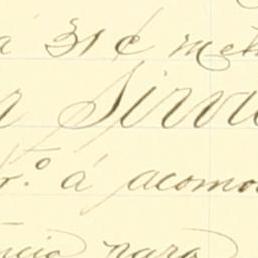 á 31 ¢ met
r Sirva
r.º á acomo
ncia para